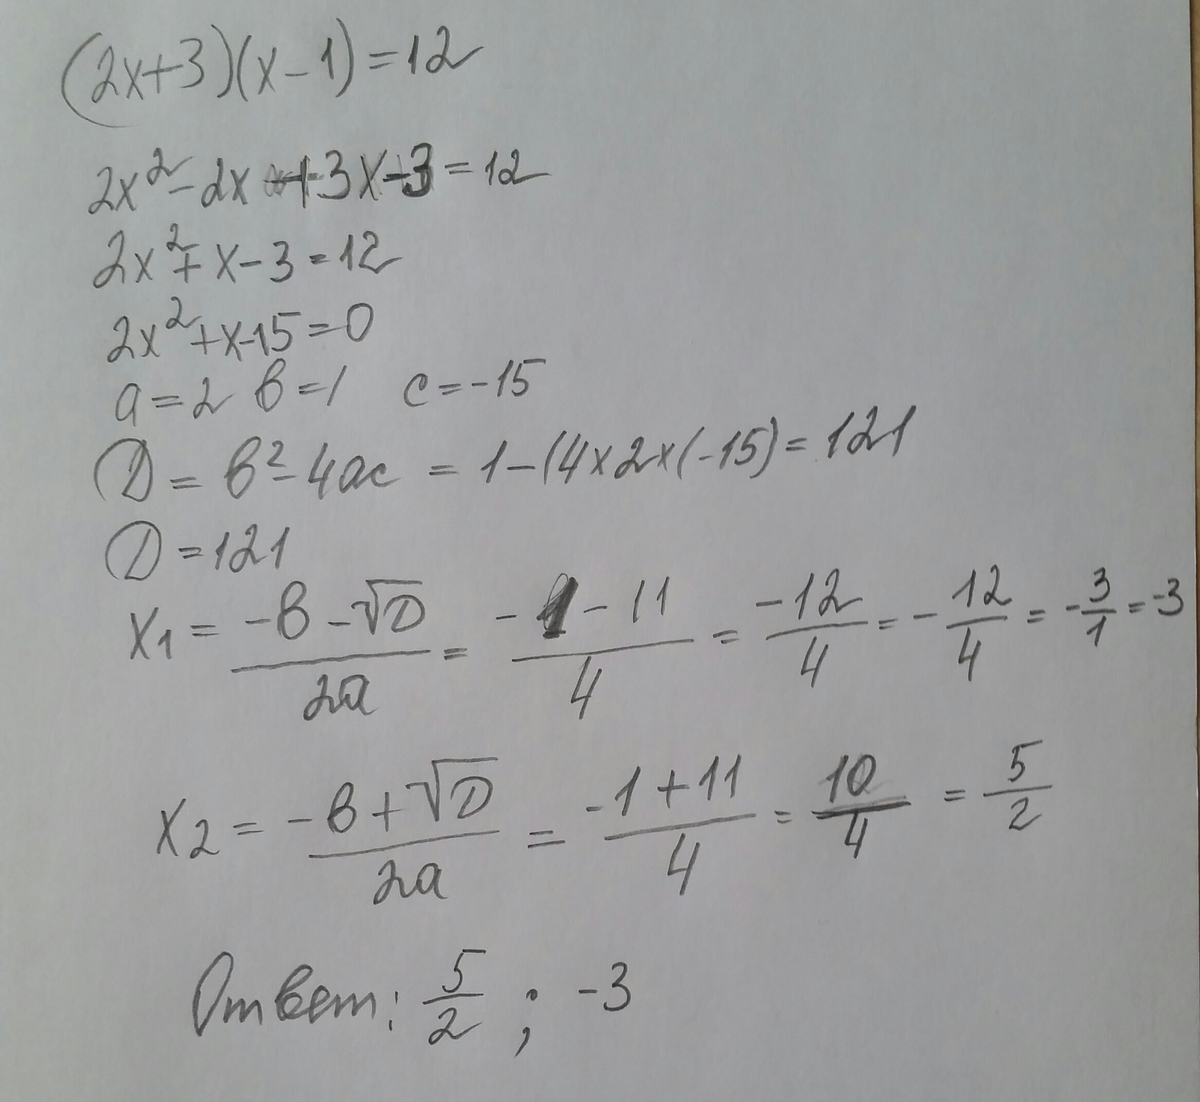 (2x+3)(x-1)=12
2x²-2x+3x-3=12
2x²+x-3=12
2x²+x-15=0
a=2 в=1 c=-15
D = в²-4ac = 1-(4×2×(-15)=121
D=121
x₁ = (-в-√D)/2a = (-1-11)/4 = -12/4 = -12/4 = -3/1 = -3
x₂ = (-в+√D)/2a = (-1+11)/4 = 10/4 = 5/2
Ответ: 5/2 ; -3